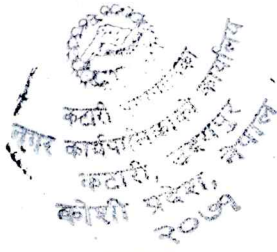 कटारी नगरपालिका
नगर कार्यपालिकाको कार्यालय
कटारी, उदयपुर
कोशी प्रदेश, नेपाल
२०७९